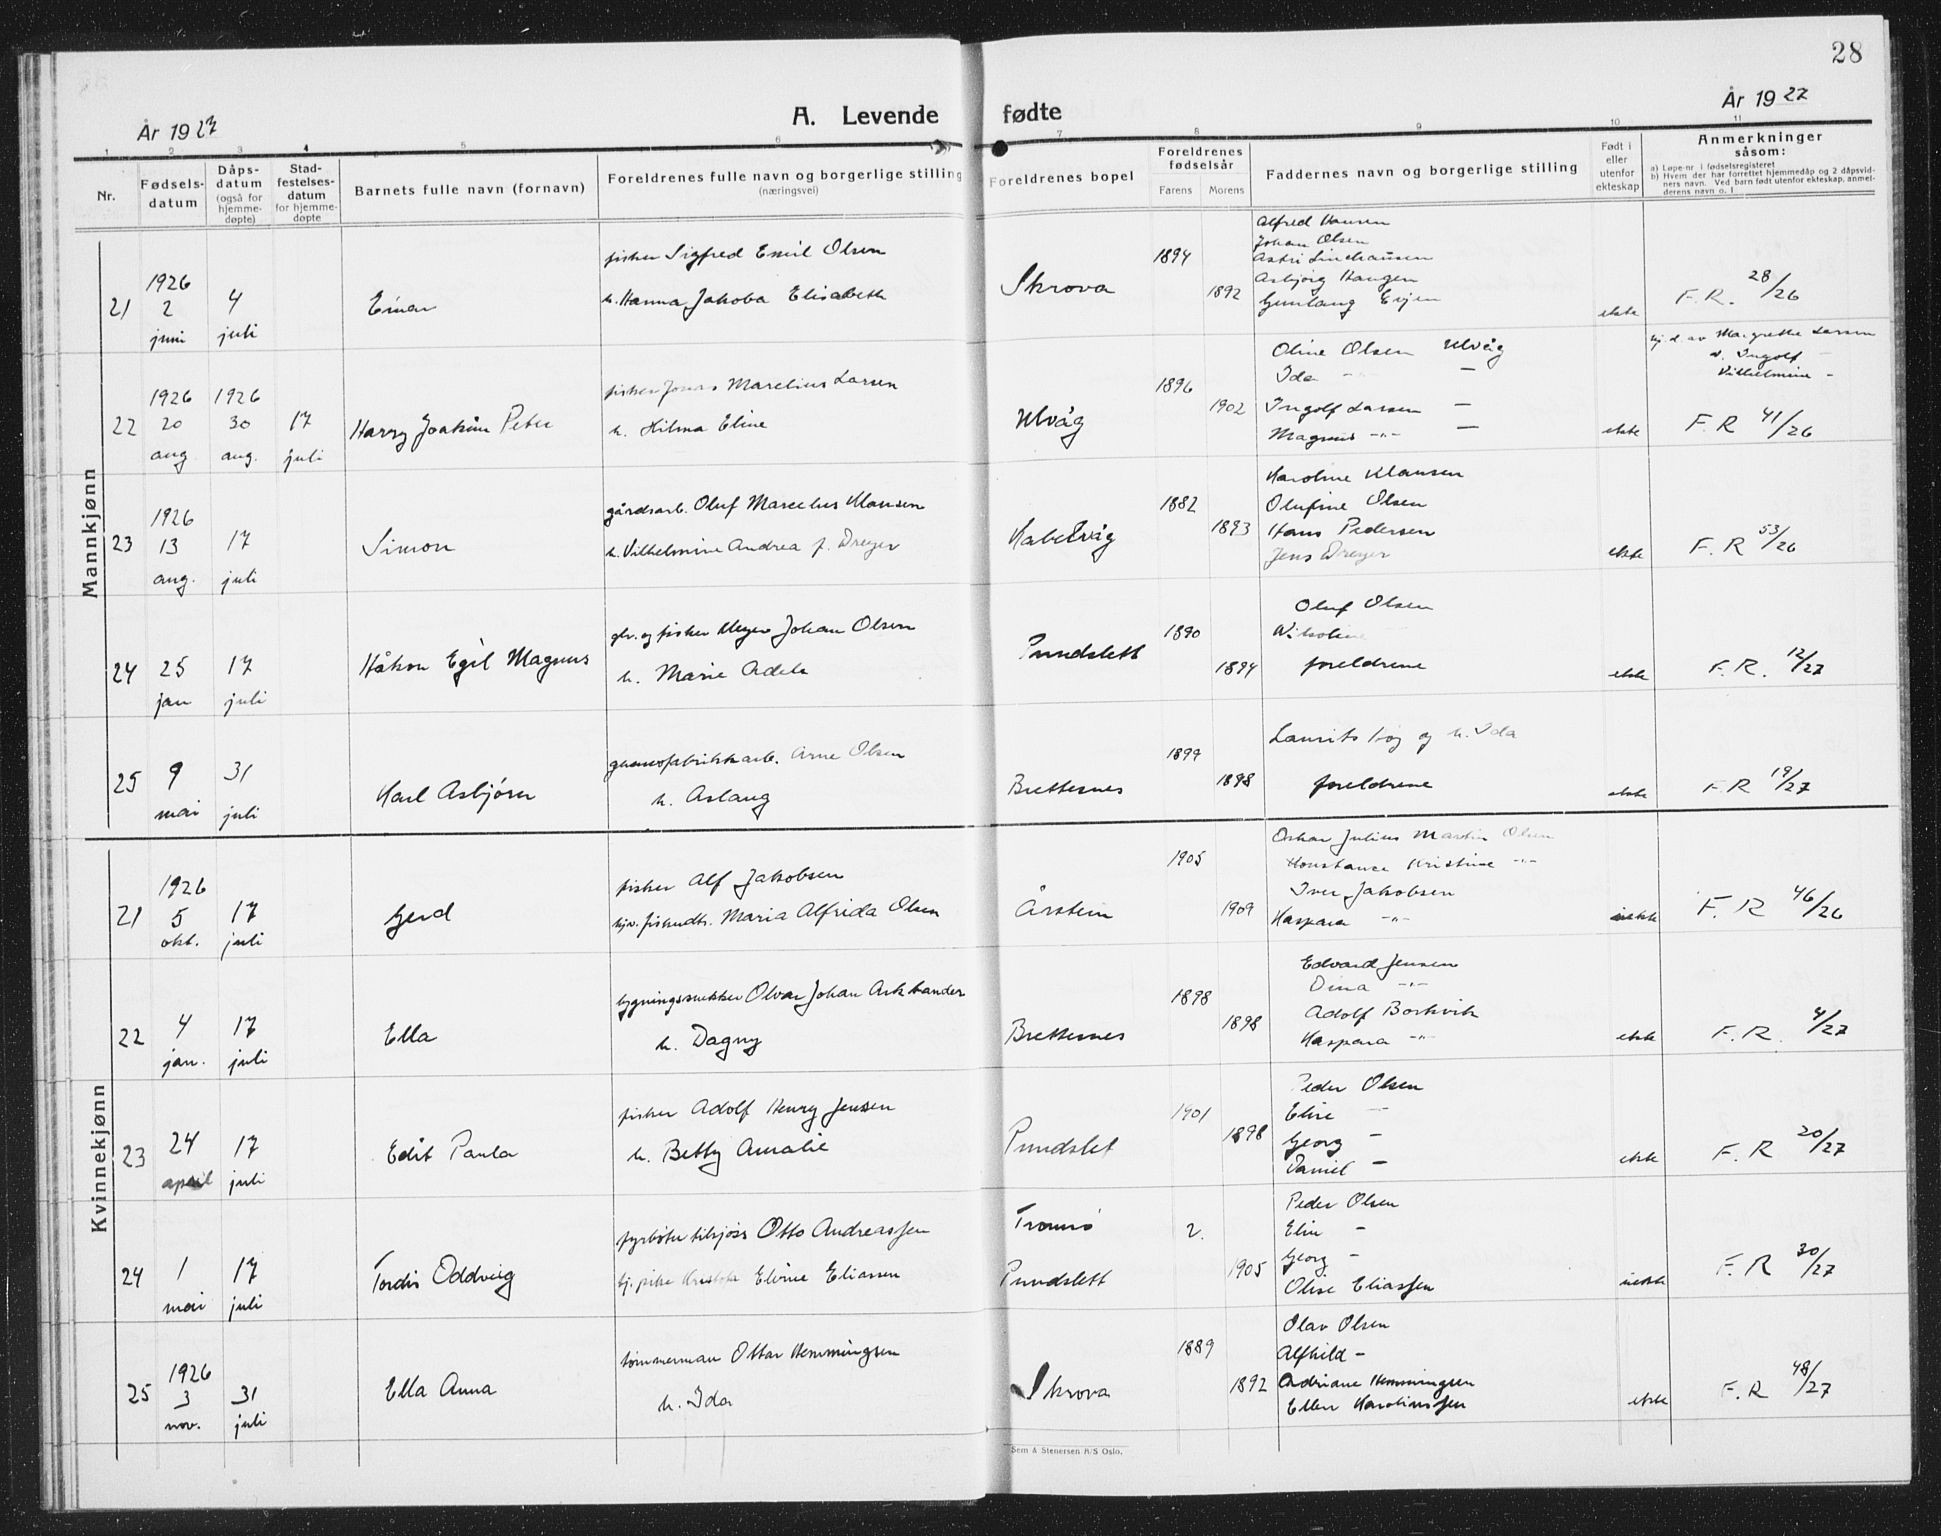 28
År 1927
A. Levende fødte
År 1927
1 2 3 4 5 6 7 8 9 10 11
Nr.
Fødsels-
datum
Dåps-
datum
(også for
hjemme-
døpte)
Stad-
festelses-
datum
for hjemme-
døpte
Barnets fulle navn (fornavn)
Foreldrenes fulle navn og borgerlige stilling
(næringsvei)
Foreldrenes bopel
Foreldrenes
fødselsår
Farens Morens
Faddernes navn og borgerlige stilling
Født i
eller
utenfor
ekteskap
Anmerkninger
såsom:
a) Løpe-nr. i fødselsregisteret
b) Hvem der har forrettet hjemmedåp og 2 dåpsvid-
ners navn. Ved barn født utenfor ekteskap, anmel-
derens navn o. l
Mannkjønn
21
1926
2
juni
4
juli
Einar
fisker Sigfred Emil Olsen
h. Hanna Jakoba Elisabeth
Skrova
1894
1892
Alfred Hansen
Johan Olsen
Astri Linchausen
Asbjørg Haugen
Gunlaug Evjen
ekte
F. R. 28/26
22
1926
20
aug
1926
30
aug.
17
juli
Harry Joakim Peter
fisker Jonas Marelius Larsen
h. Hilma Eline
Ulvåg
1896
1902
Oline Olsen Ulvåg
Ida -"- —
Ingolf Larsen —
Magnus -"- —
ekte
hj. d. av Margrethe Larsen
v. Ingolf -
Vilhelmine -
F. R 41/26
23
1926
13
aug.
17
juli
Simon
gårdsarb. Oluf Marelius Klausen
h. Vilhelmine Andrea f. Dreyer
Kabelvåg
1882
1893
Karoline Klausen
Olufine Olsen
Hans Pedersen
Jens Dreyer
ekte
F. R 53/26
24
25
jan
17
juli
Håkon Egil Magnus
gbr. og fisker Meyer Johan Olsen
h. Marie Adele
Pundslett
1890
1894
Oluf Olsen
foreldrene
ekte
F. R. 12/27
25
9
mai
31
juli
Karl Asbjørn
guanofabrikkarb. Arne Olsen
h. Aslaug
Brettesnes
1899
1898
Laurits og h. Ida
foreldrene
ekte
F. R 19/27
Kvinnekjønn
21
1926
5
okt.
17
juli
Gerd
fisker Alf Jakobsen
Maria Alfrida Olsen
Årstein
1905
1909
Oskar Julius Martin Olsen
Konstance Kristine -"-
Iver Jakobsen
Kaspara -"-
uekte
F. R 46/26
22
4
jan.
17
juli
Ella
bygningssnekker Olvar Johan Arkhander
h. Dagny
Brettesnes
1898
1898
Edvard Jensen
Dina -"-
Adolf Borkvik
Kaspara -"-
ekte
F. R. 4/27
23
24
april
17
juli
Edit Paula
fisker Adolf Henry Jensen
h. Betty Amalie
Pundslet
1901
1898
Peder Olsen
Eline -
Georg -
Daniel -
ekte
F. R 20/27
24
1
mai
17
juli
Tordis Oddveig
fyrbøter tilsjøss Otto Andreassen
hj. pike Elvine Eliassen
Tromsø
Pundslett
2.
1905
Peder Olsen
Elin -
Georg -
Olise Eliassen
uekte
F. R 30/27
25
1926
3
nov.
31
juli
Ella Anna
tømmerman Ottar Hemmingsen
h. Ida
Skrova
1889
1892
Olav Olsen
Alfhild -
Adriane Hemmingsen
Ellen Karolinssen
ekte
F. R 48/27
Sem & Stenersen A/S Oslo.